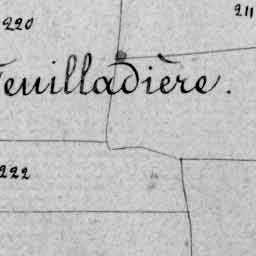 220
211
Feuilladière.
222